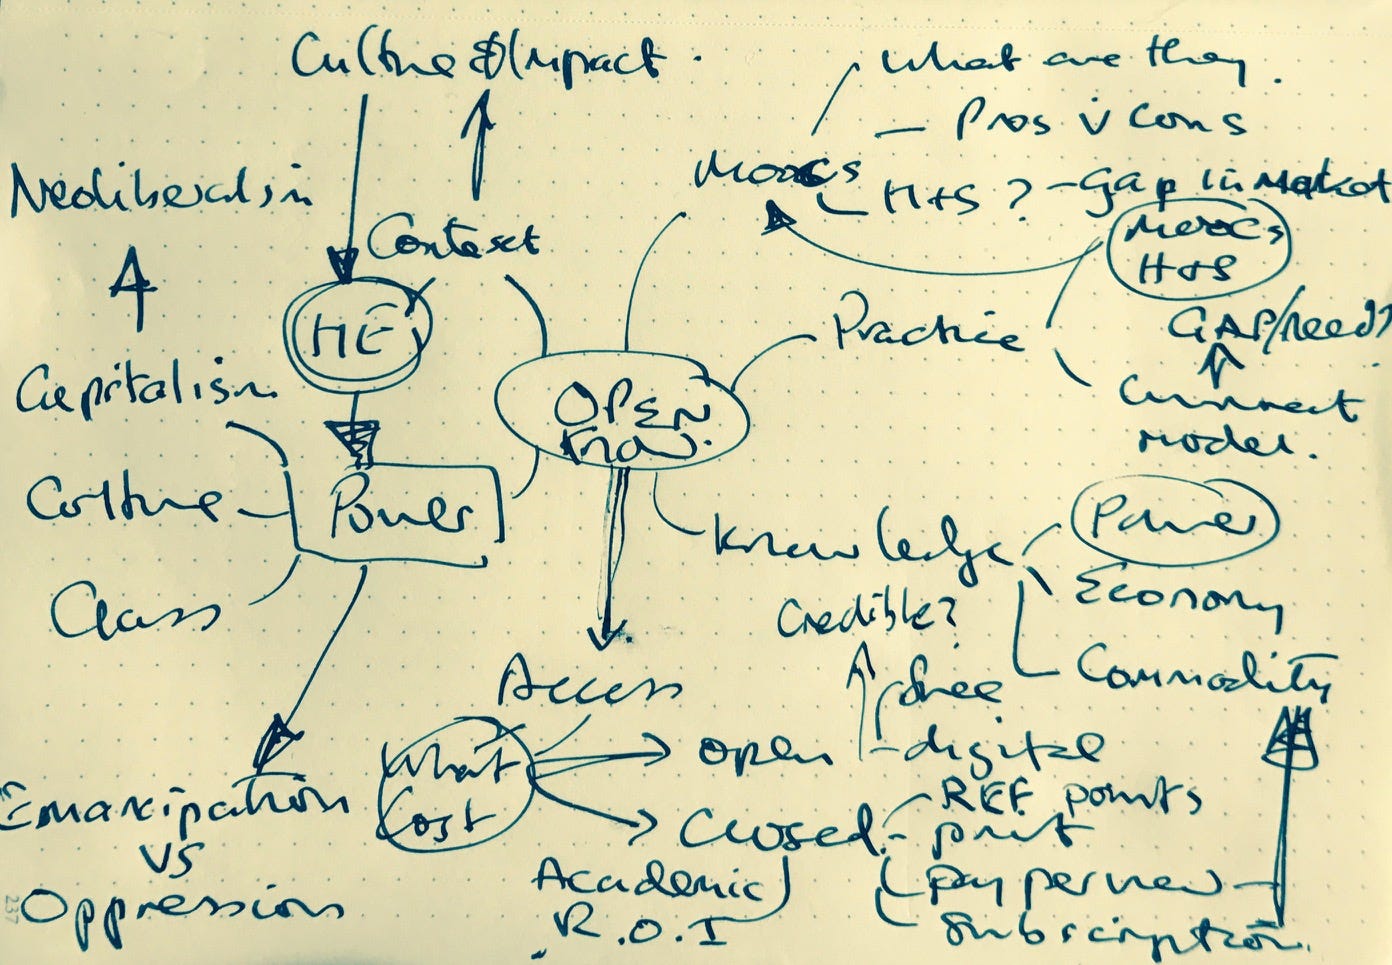 Culture & Impact.
what are they.
- Pros v Cons
Moocs
H+S? - Gap in Market
Neoliberalism
Context
Moocs
H+S
HE
Practice
GAP/need?
Capitalism
OPEN
Know.
Current
model.
Culture
Power
Knowledge
Power
Economy
Class
Credible?
Commodity
Access
free
What
Cost
open
digital
Emancipation
vs
Oppression
REF points
Closed
print
pay per view
Academic
R.O.I
Subscription.
237